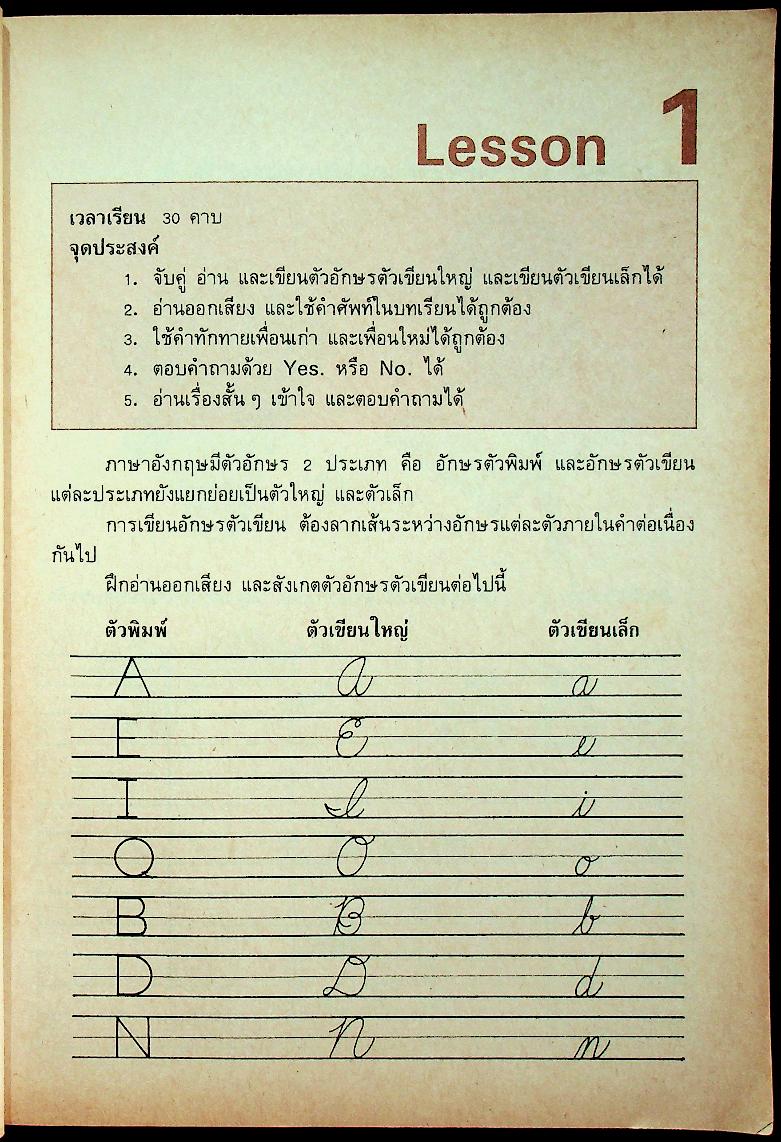 Lesson 1
เวลาเรียน 30 คาบ
จุดประสงค์
1. จับคู่ อ่าน และเขียนตัวอักษรตัวเขียนใหญ่ และเขียนตัวเขียนเล็กได้
2. อ่านออกเสียง และใช้คำศัพท์ในบทเรียนได้ถูกต้อง
3. ใช้คำทักทายเพื่อนเก่า และเพื่อนใหม่ได้ถูกต้อง
4. ตอบคำถามด้วย Yes. หรือ No. ได้
5. อ่านเรื่องสั้น ๆ เข้าใจ และตอบคำถามได้
ภาษาอังกฤษมีตัวอักษร 2 ประเภท คือ อักษรตัวพิมพ์ และอักษรตัวเขียน
แต่ละประเภทยังแยกย่อยเป็นตัวใหญ่ และตัวเล็ก
การเขียนอักษรตัวเขียน ต้องลากเส้นระหว่างอักษรแต่ละตัวภายในคำต่อเนื่อง
กันไป
ฝึกอ่านออกเสียง และสังเกตตัวอักษรตัวเขียนต่อไปนี้
ตัวพิมพ์ ตัวเขียนใหญ่ ตัวเขียนเล็ก
A A a
E E e
I I i
O O o
B B b
D D d
N N n